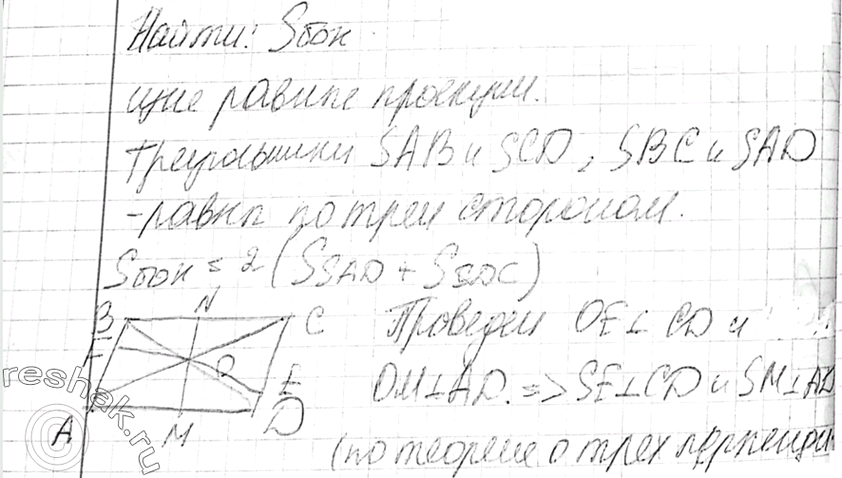 Найти: Sбок
щие равные проекции.
Треугольники SAB и SCD, SBC и SAD
-равны по трем сторонам.
Sбок = 2 (SSAD + SSDC)
B N C
Проведем OE⊥ CD и
F O E
OM⊥AD. => SE⊥CD и SM⊥AD
A M D
(по теореме о трех перпенди
reshak.ru